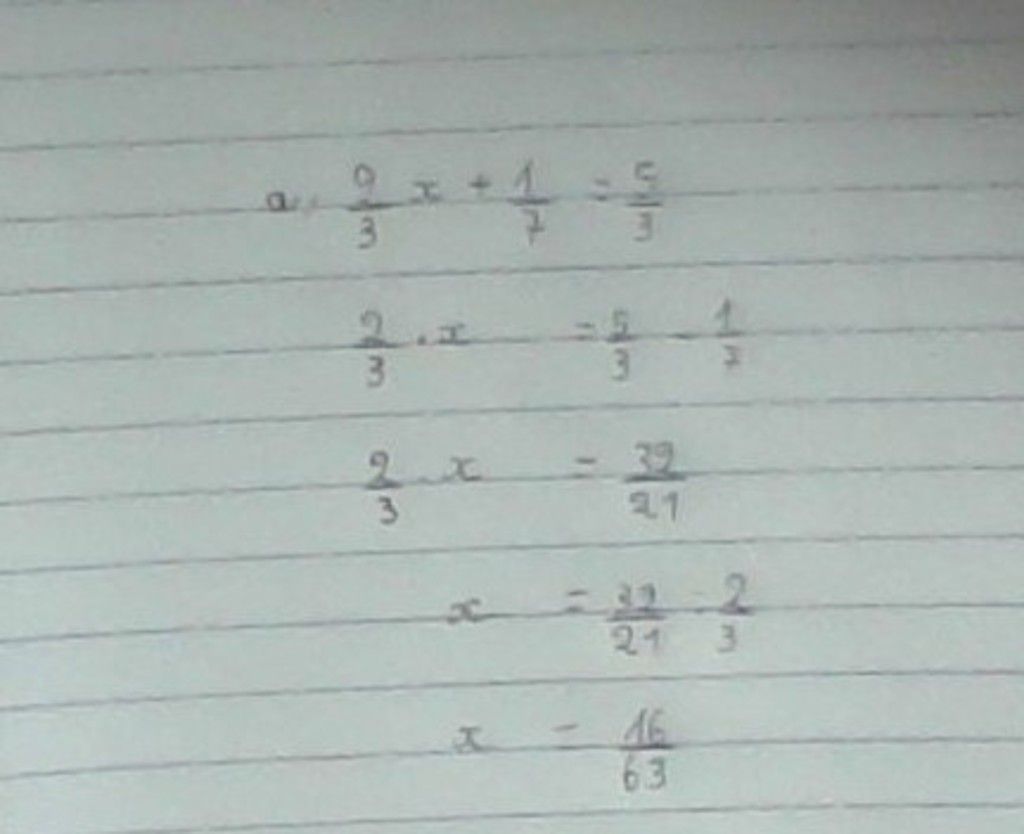 a. 2/3 x + 1/7 = 5/3
2/3 . x = 5/3 - 1/7
2/3 . x = 32/21
x = 32/21 . 2/3
x = 16/63